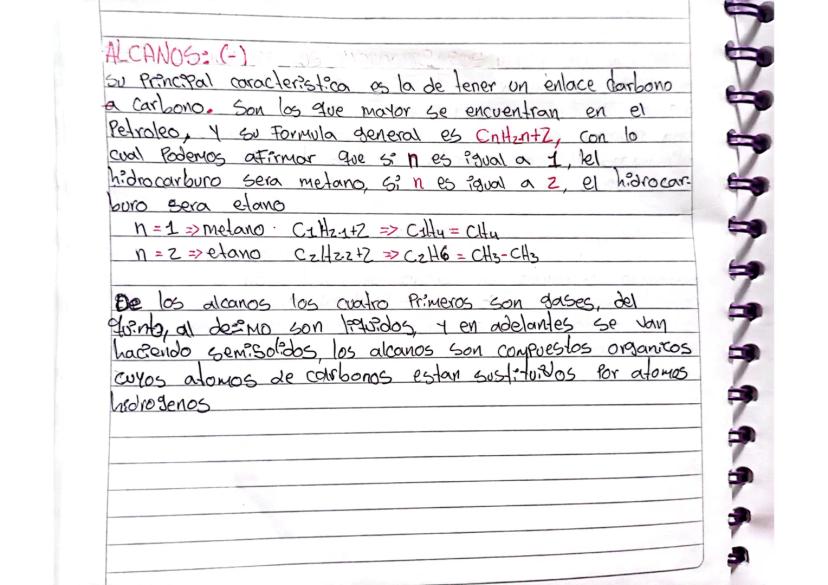 ALCANOS: (-)
su Principal caracteristica es la de tener un enlace carbono
a carbono. Son los que mayor se encuentran en el
Petroleo, y su formula general es CnH2n+2, con lo
cual Podemos afirmar que si n es igual a 1, el
hidrocarburo sera metano, si n es igual a 2, el hidrocar-
buro sera etano
n = 1 => metano · C1H2·1+2 => C1H4 = CH4
n = 2 => etano C2H2·2+2 => C2H6 = CH3-CH3
De los alcanos los cuatro Primeros son gases, del
quinto, al desimo son liquidos, y en adelantes se van
haciendo semisolidos, los alcanos son compuestos organicos
cuyos atomos de carbonos estan sustituidos Por atomos
hidrogenos